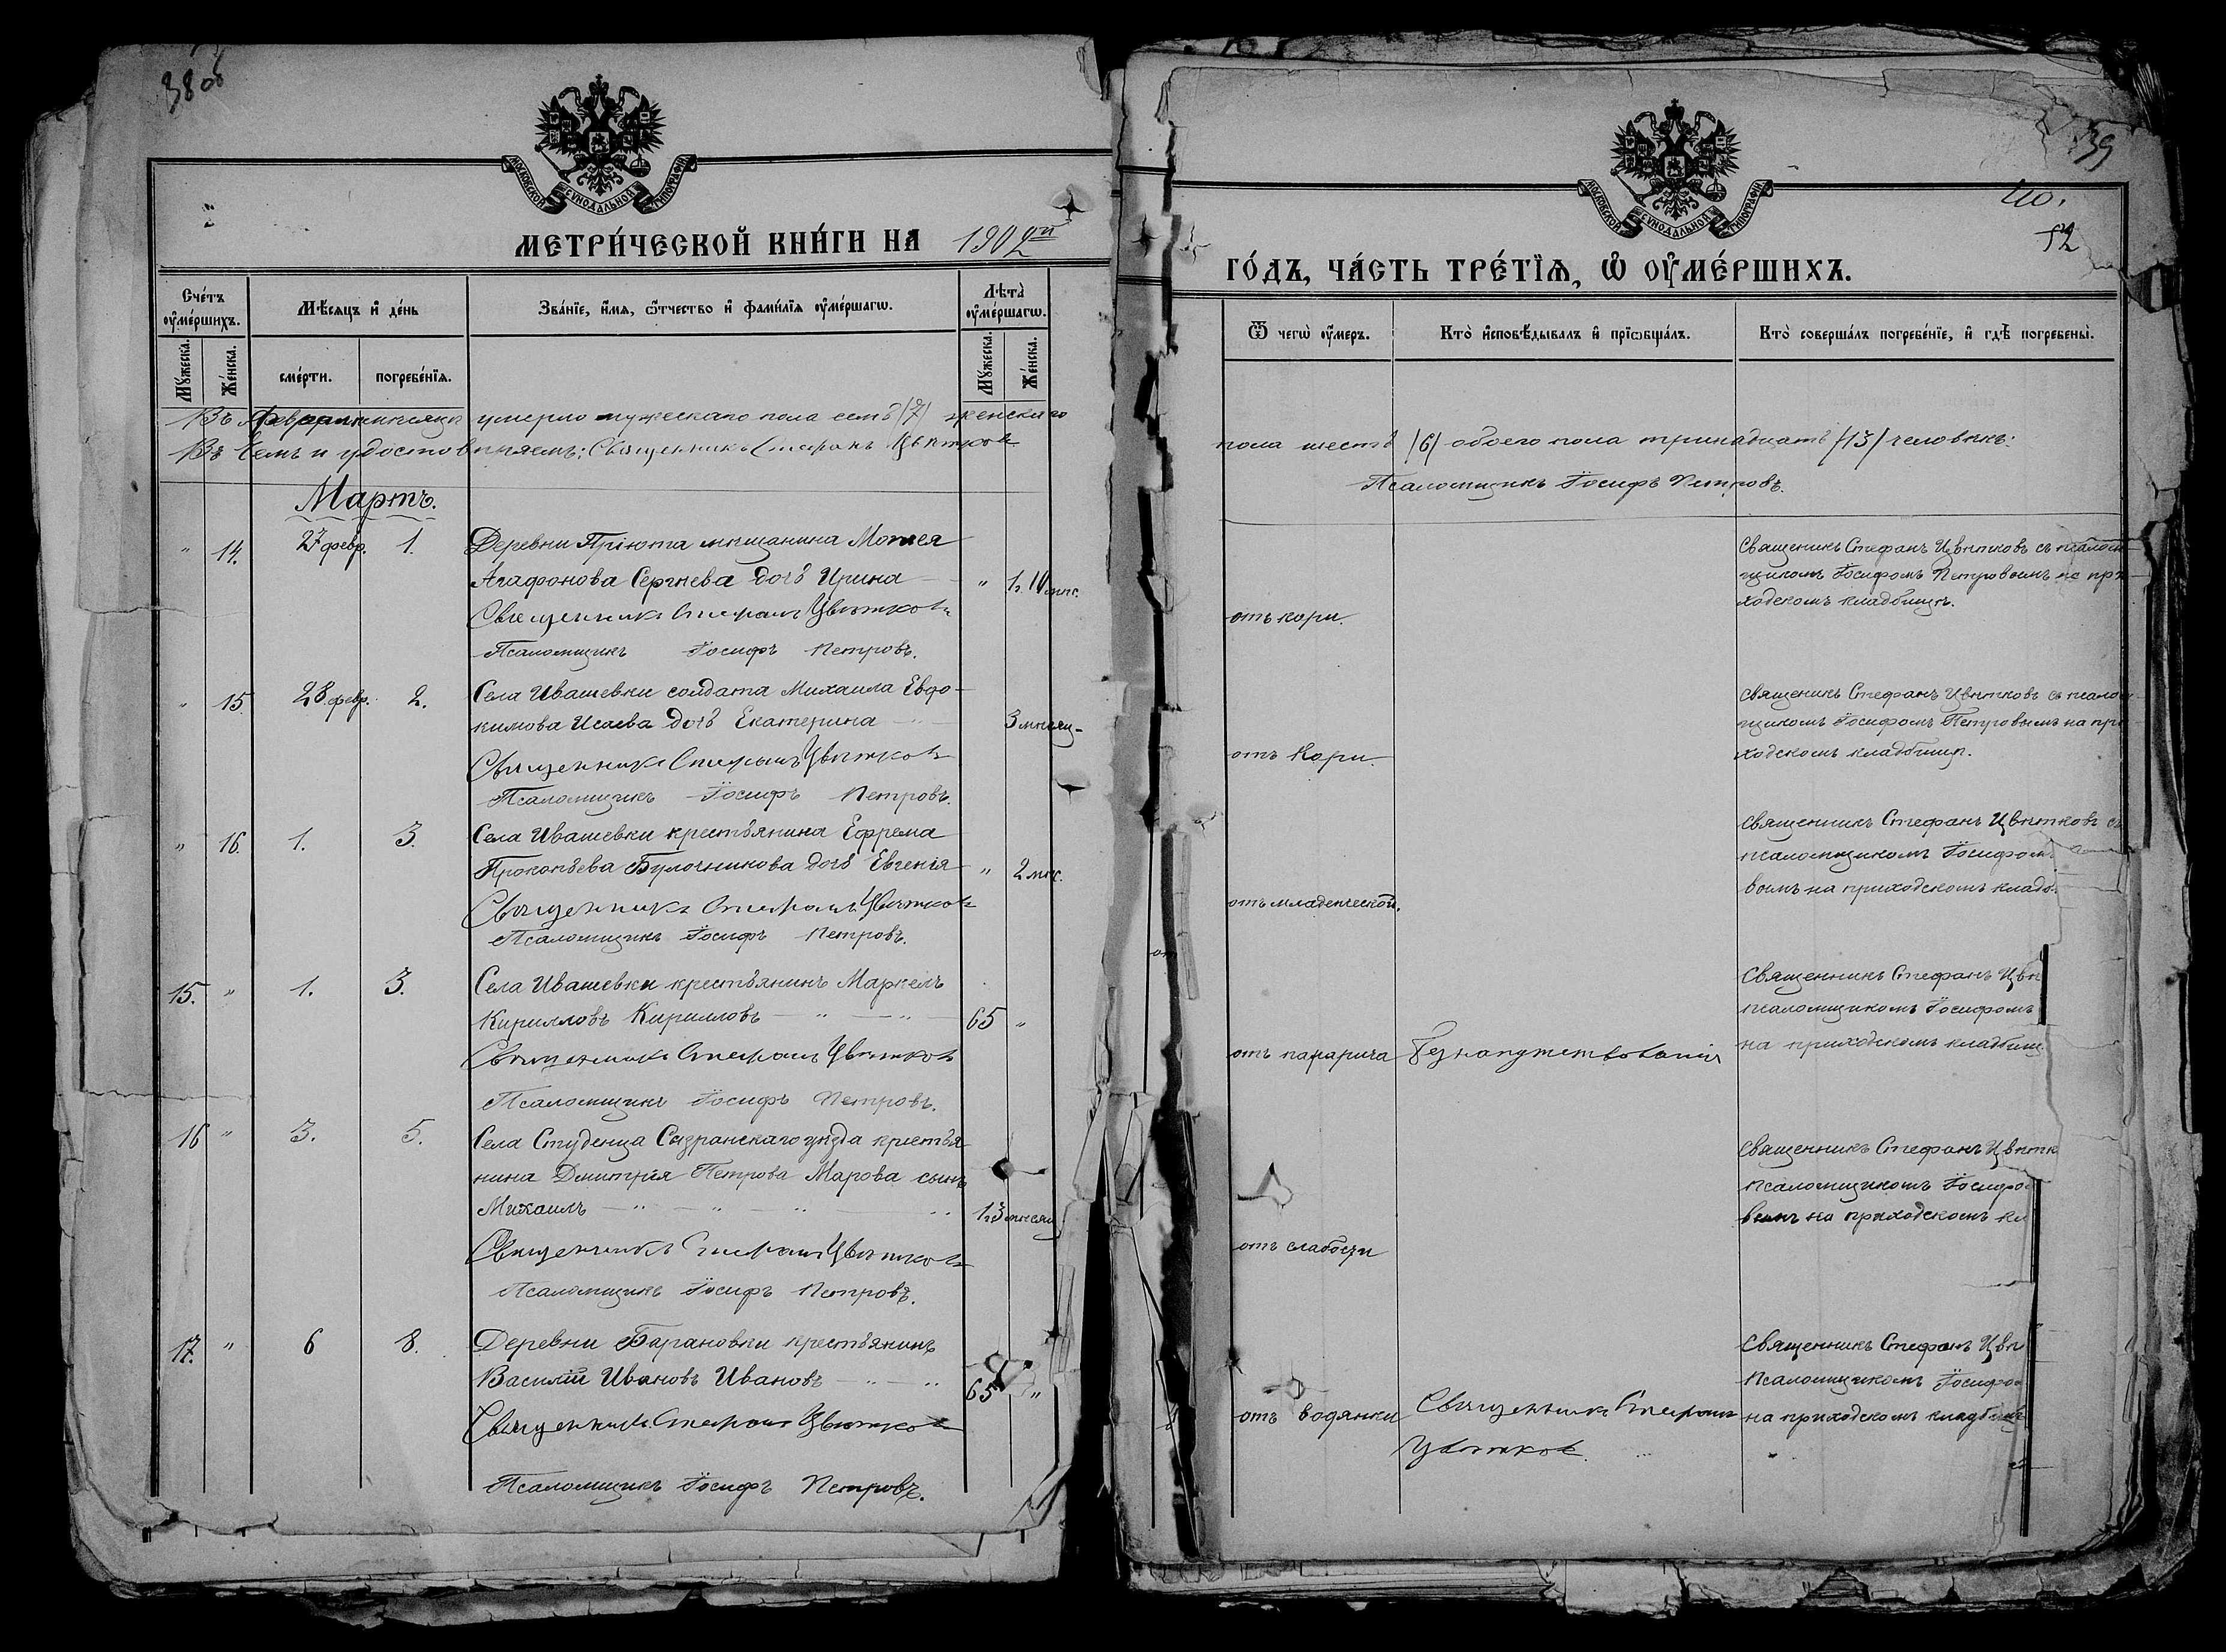 38 об
МОСКОВСКОЙ СѴНОДАЛЬНОЙ ТИПОГРАФІИ
МЕТРИ́ЧЕСКОЙ КНИ́ГИ НА 1902 ой
Сче́тъ оу҆ме́ршихъ.
Мѣ́сяцъ и҆ де́нь
Зва́нїе, и҆́мя, ѻ҆́тчество и҆ фами́лїя оу҆ме́ршагѡ.
Лѣта̀ оу҆ме́ршагѡ.
Мꙋ́жеска.
Же́нска.
сме́рти.
погребе́нїя.
Мꙋ́жеска.
Же́нска.
Въ Февралѣ мѣсяцѣ умерло мужескаго пола семь /7/ женскаго
Въ чемъ и удостовѣряемъ: Священникъ Стефанъ Цвѣтковъ
Мартъ.
" 14. 27 февр. 1. Деревни Пріюта мѣщанина Моисея
Агафонова Сергѣева дочь Ирина " 1 г. 10 мѣс.
Священникъ Стефанъ Цвѣтковъ
Псаломщикъ Іосифъ Петровъ.
" 15 28 февр. 2. Села Ивашевки солдата Михаила Евдо-
кимова Исаева дочь Екатерина 3 мѣсяц-
Священникъ Стефанъ Цвѣтковъ
Псаломщикъ Іосифъ Петровъ.
" 16. 1. 3. Села Ивашевки крестьянина Ефрема
Прокопьева Булочникова дочь Евгенія " 2 мѣс.
Священникъ Стефанъ Цвѣтковъ
Псаломщикъ Іосифъ Петровъ.
15. " 1. 3. Села Ивашевки крестьянинъ Маркелъ
Кирилловъ Кирилловъ 65 "
Священникъ Стефанъ Цвѣтковъ
Псаломщикъ Іосифъ Петровъ.
16 " 3. 5. Села Студенца Сызранскаго уѣзда крестья
нина Дмитрія Петрова Марова сынъ
Михаилъ 1 г. 3 мѣсяц
Священникъ Стефанъ Цвѣтковъ
Псаломщикъ Іосифъ Петровъ.
17. " 6 8. Деревни Барановки крестьянинъ
Василій Ивановъ Ивановъ 65 "
Священникъ Стефанъ Цвѣтковъ
Псаломщикъ Іосифъ Петровъ.
39
40.
52
МОСКОВСКОЙ СѴНОДАЛЬНОЙ ТИПОГРАФІИ
ГО́ДЪ, ЧА́СТЬ ТРЕ́ТЇЯ, Ѡ҆ ОУ҆МЕ́РШИХЪ.
Ѿ чегѡ̀ оу҆́меръ.
Кто̀ и҆сповѣ́дывалъ и҆ прїѡбща́лъ.
Кто̀ соверша́лъ погребе́нїе, и҆ гдѣ̀ погребены̀.
пола шесть /6/ обоего пола тринадцать /13/ человѣкъ:
Псаломщикъ Іосифъ Петровъ.
Священикъ Стефанъ Цвѣтковъ съ псалом-
щикомъ Іосифомъ Петровымъ на при-
ходскомъ кладбищѣ.
отъ кори.
священикъ Стефанъ Цвѣтковъ съ псалом-
щикомъ Іосифомъ Петровымъ на при-
ходскомъ кладбищѣ.
отъ Кори.
священникъ Стефанъ Цвѣтковъ съ
псаломщикомъ Іосифомъ
вымъ на приходскомъ кладб.
отъ младенческой.
Священникъ Стефанъ Цвѣ
псаломщикомъ Іосифомъ
на приходскомъ кладбищ
отъ паралича Безнапутствованія
священникъ Стефанъ Цвѣтк
псаломщикомъ Іосифо
вымъ на приходскомъ кл
отъ слабости
священникъ Стефанъ Цвѣ
Псаломщикомъ Іосифо
отъ водянки Священникъ Стефанъ на приходскомъ кладбищѣ
Цвѣтковъ.